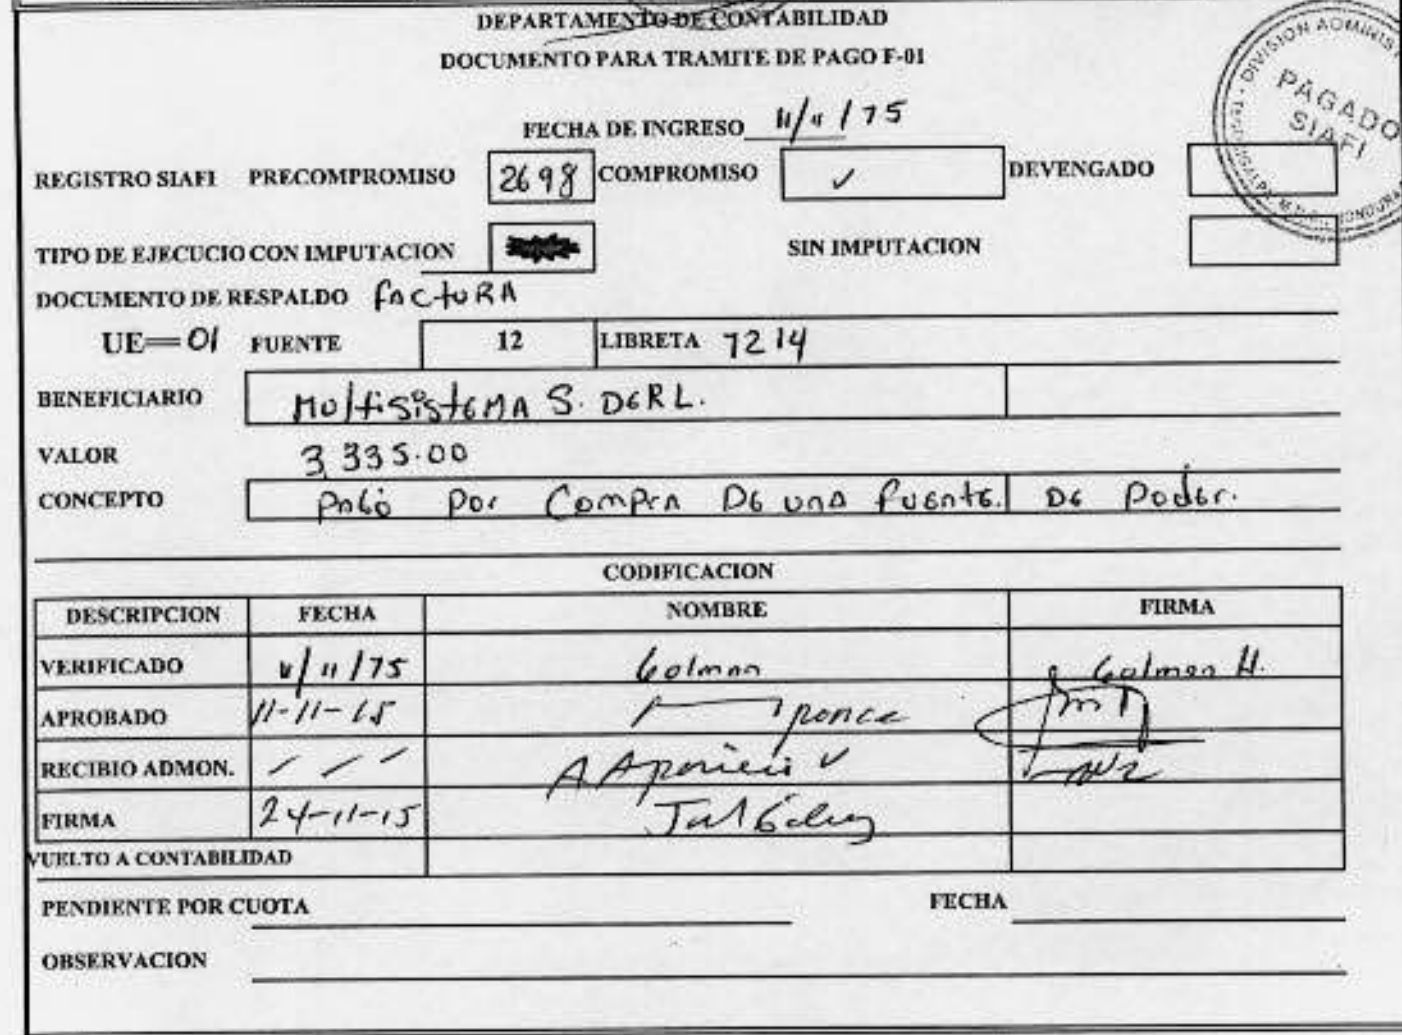 DEPARTAMENTO DE CONTABILIDAD
DOCUMENTO PARA TRAMITE DE PAGO F-01
DIVISION ADMINIST
PAGADO
SIAFI
HONDURA
FECHA DE INGRESO 11/11/75
REGISTRO SIAFI PRECOMPROMISO 2698 COMPROMISO ✓ DEVENGADO
TIPO DE EJECUCIO CON IMPUTACION SIN IMPUTACION
DOCUMENTO DE RESPALDO FACtURA
UE=01 FUENTE 12 LIBRETA 7214
BENEFICIARIO MOltisistEMA S. DERL.
VALOR 3,335.00
CONCEPTO PAGO por Compra De una fuente. De Poder.
CODIFICACION
DESCRIPCION FECHA NOMBRE FIRMA
VERIFICADO 11/11/75 Golman Golman H.
APROBADO 11-11-15 ponce
RECIBIO ADMON. A Aparicio V
FIRMA 24-11-15
VUELTO A CONTABILIDAD
PENDIENTE POR CUOTA FECHA
OBSERVACION